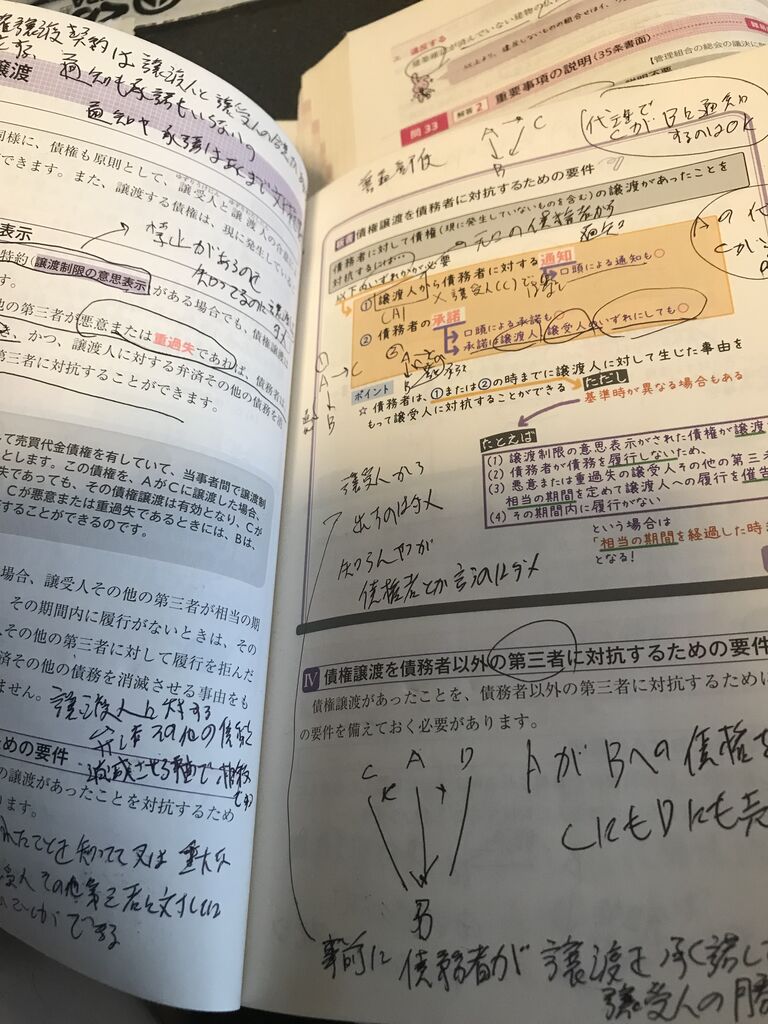 譲渡契約は譲渡人と譲受人の
通知も承諾もいらない
通知や承諾はあくまで対抗
譲渡
同様に、債権も原則として、譲受人と譲渡人の合意に
できます。また、譲渡する債権は、現に発生している
表示
禁止があるのを
知ってるのに
特約(譲渡制限の意思表示)がある場合でも、債権譲渡
他の第三者が悪意または重過失であれば、債務者は
き、かつ、譲渡人に対する弁済その他の債務を消
三者に対抗することができます。
して売買代金債権を有していて、当事者間で譲渡制
とします。この債権を、AがCに譲渡した場合、
失であっても、その債権譲渡は有効となり、Cが
Cが悪意または重過失であるときには、Bは、
することができるのです。
場合、譲受人その他の第三者が相当の期
その期間内に履行がないときは、その
その他の第三者に対して履行を拒んだ
済その他の債務を消滅させる事由をも
ません。
譲渡人に対する
弁済その他の債務を
消滅させる事由で
ための要件
の譲渡があったことを対抗するため
ります。
たことを知ってて又は重大な
受人その他第三者に対しては
ができる
エ 違反する
以上より、違反しないものの組合せは
問33 解答2 重要事項の説明(35条書面)
【管理組合の総会の議決に
説明不要
A → C
B
代理で
CがBに通知
するのはOK
債権譲渡を債務者に対抗するための要件
債務者に対して債権(現に発生していないものを含む)の譲渡があったことを
対抗するには…
元の債権者から
通知
以下のいずれかが必要
① 譲渡人から債務者に対する通知
口頭による通知も○
(A) ×譲受人(C)で
② 債務者の承諾
口頭による承諾も○
承諾は譲渡人、譲受人のいずれにしても○
Aの代
Cが
A → C
B
ポイント
☆ 債務者は、①または②の時までに譲渡人に対して生じた事由を
もって譲受人に対抗することができる ただし
基準時が異なる場合もある
たとえば
(1) 譲渡制限の意思表示がされた債権が譲渡
(2) 債務者が債務を履行しないため、
(3) 悪意または重過失の譲受人その他の第三者
相当の期間を定めて譲渡人への履行を催告
(4) その期間内に履行がない
という場合は
「相当の期間を経過した時
となる!
譲受人から
出すのはダメ
知らんやつが
債権者とか言うのはダメ
Ⅳ 債権譲渡を債務者以外の第三者に対抗するための要件
債権譲渡があったことを、債務者以外の第三者に対抗するために
の要件を備えておく必要があります。
C A D
B
AがBへの債権を
CにもDにも売
事前に債務者が譲渡を承諾して
譲受人の